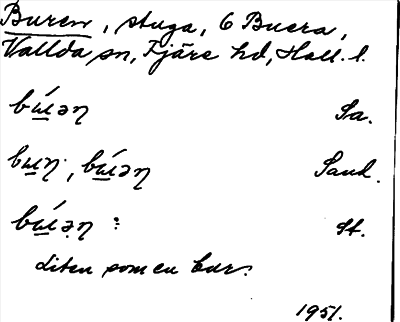 Buren, stuga, 6 Buera,
Vallda sn, Fjäre hd, Hall. l.
bɯ́ən Sa.
bɯn, bɯ́ən Sand.
bɯ́ən : St.
Liten som en bur.
1951.